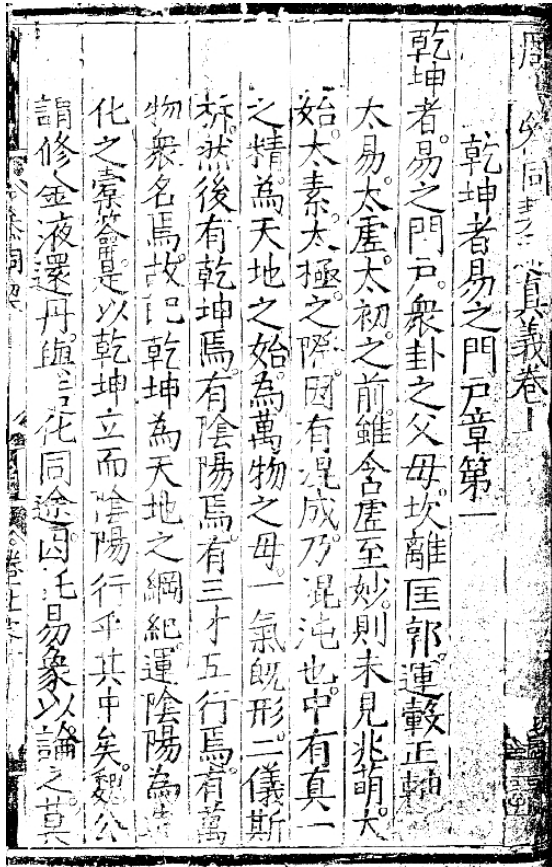 周易參同契通真義卷上
乾坤者易之門戶章第一
乾坤者。易之門戶。衆卦之父母。坎離匡郭。運轂正軸
太易。太虛。太初。之前。雖含虛至妙。則未見兆萌。太
始。太素。太極。之際。因有混成。乃混沌也。中有真一
之精。為天地之始。為萬物之母。一氣旣形。二儀斯
析。然後有乾坤焉。有陰陽焉。有三才五行焉。有萬
物衆名焉。故配乾坤為天地之綱紀。運陰陽為造
化之橐籥。是以乾坤立而陰陽行乎其中矣。魏公
謂修金液還丹。與造化同途。因託易象以論之。莫